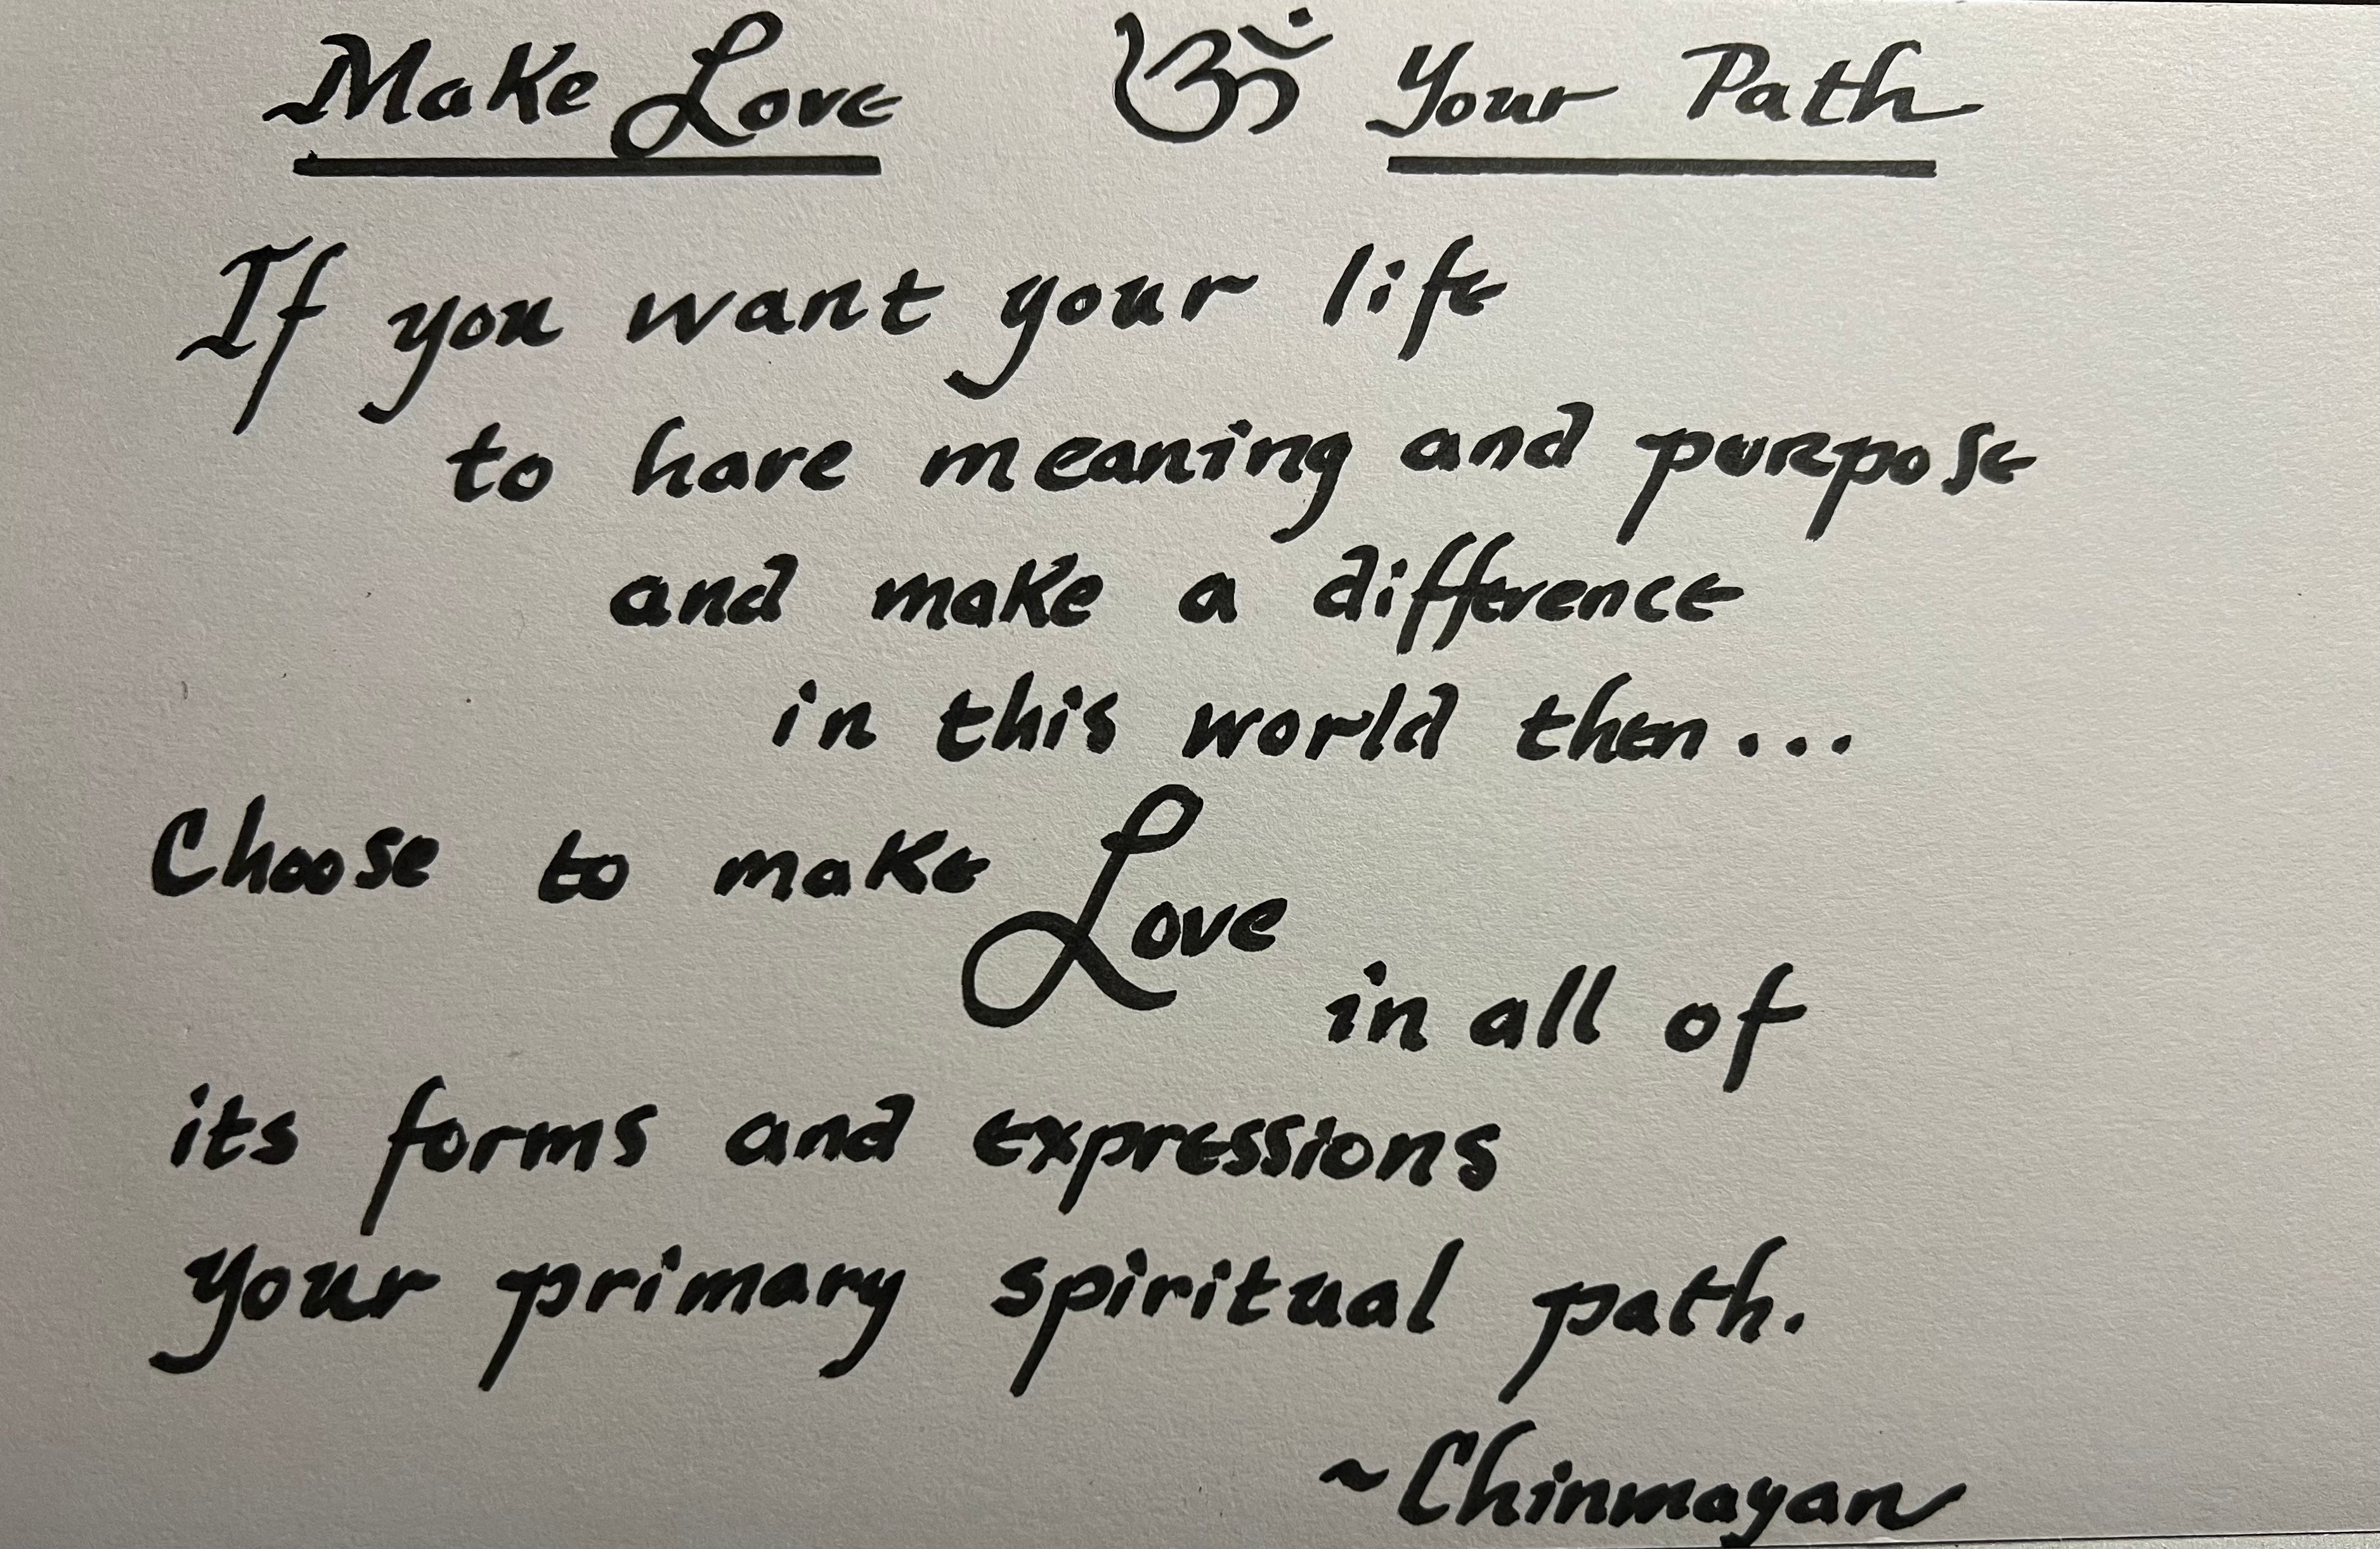 Make Love ॐ Your Path
If you want your life
to have meaning and purpose
and make a difference
in this world then...
Choose to make Love in all of
its forms and expressions
your primary spiritual path.
~Chinmayan